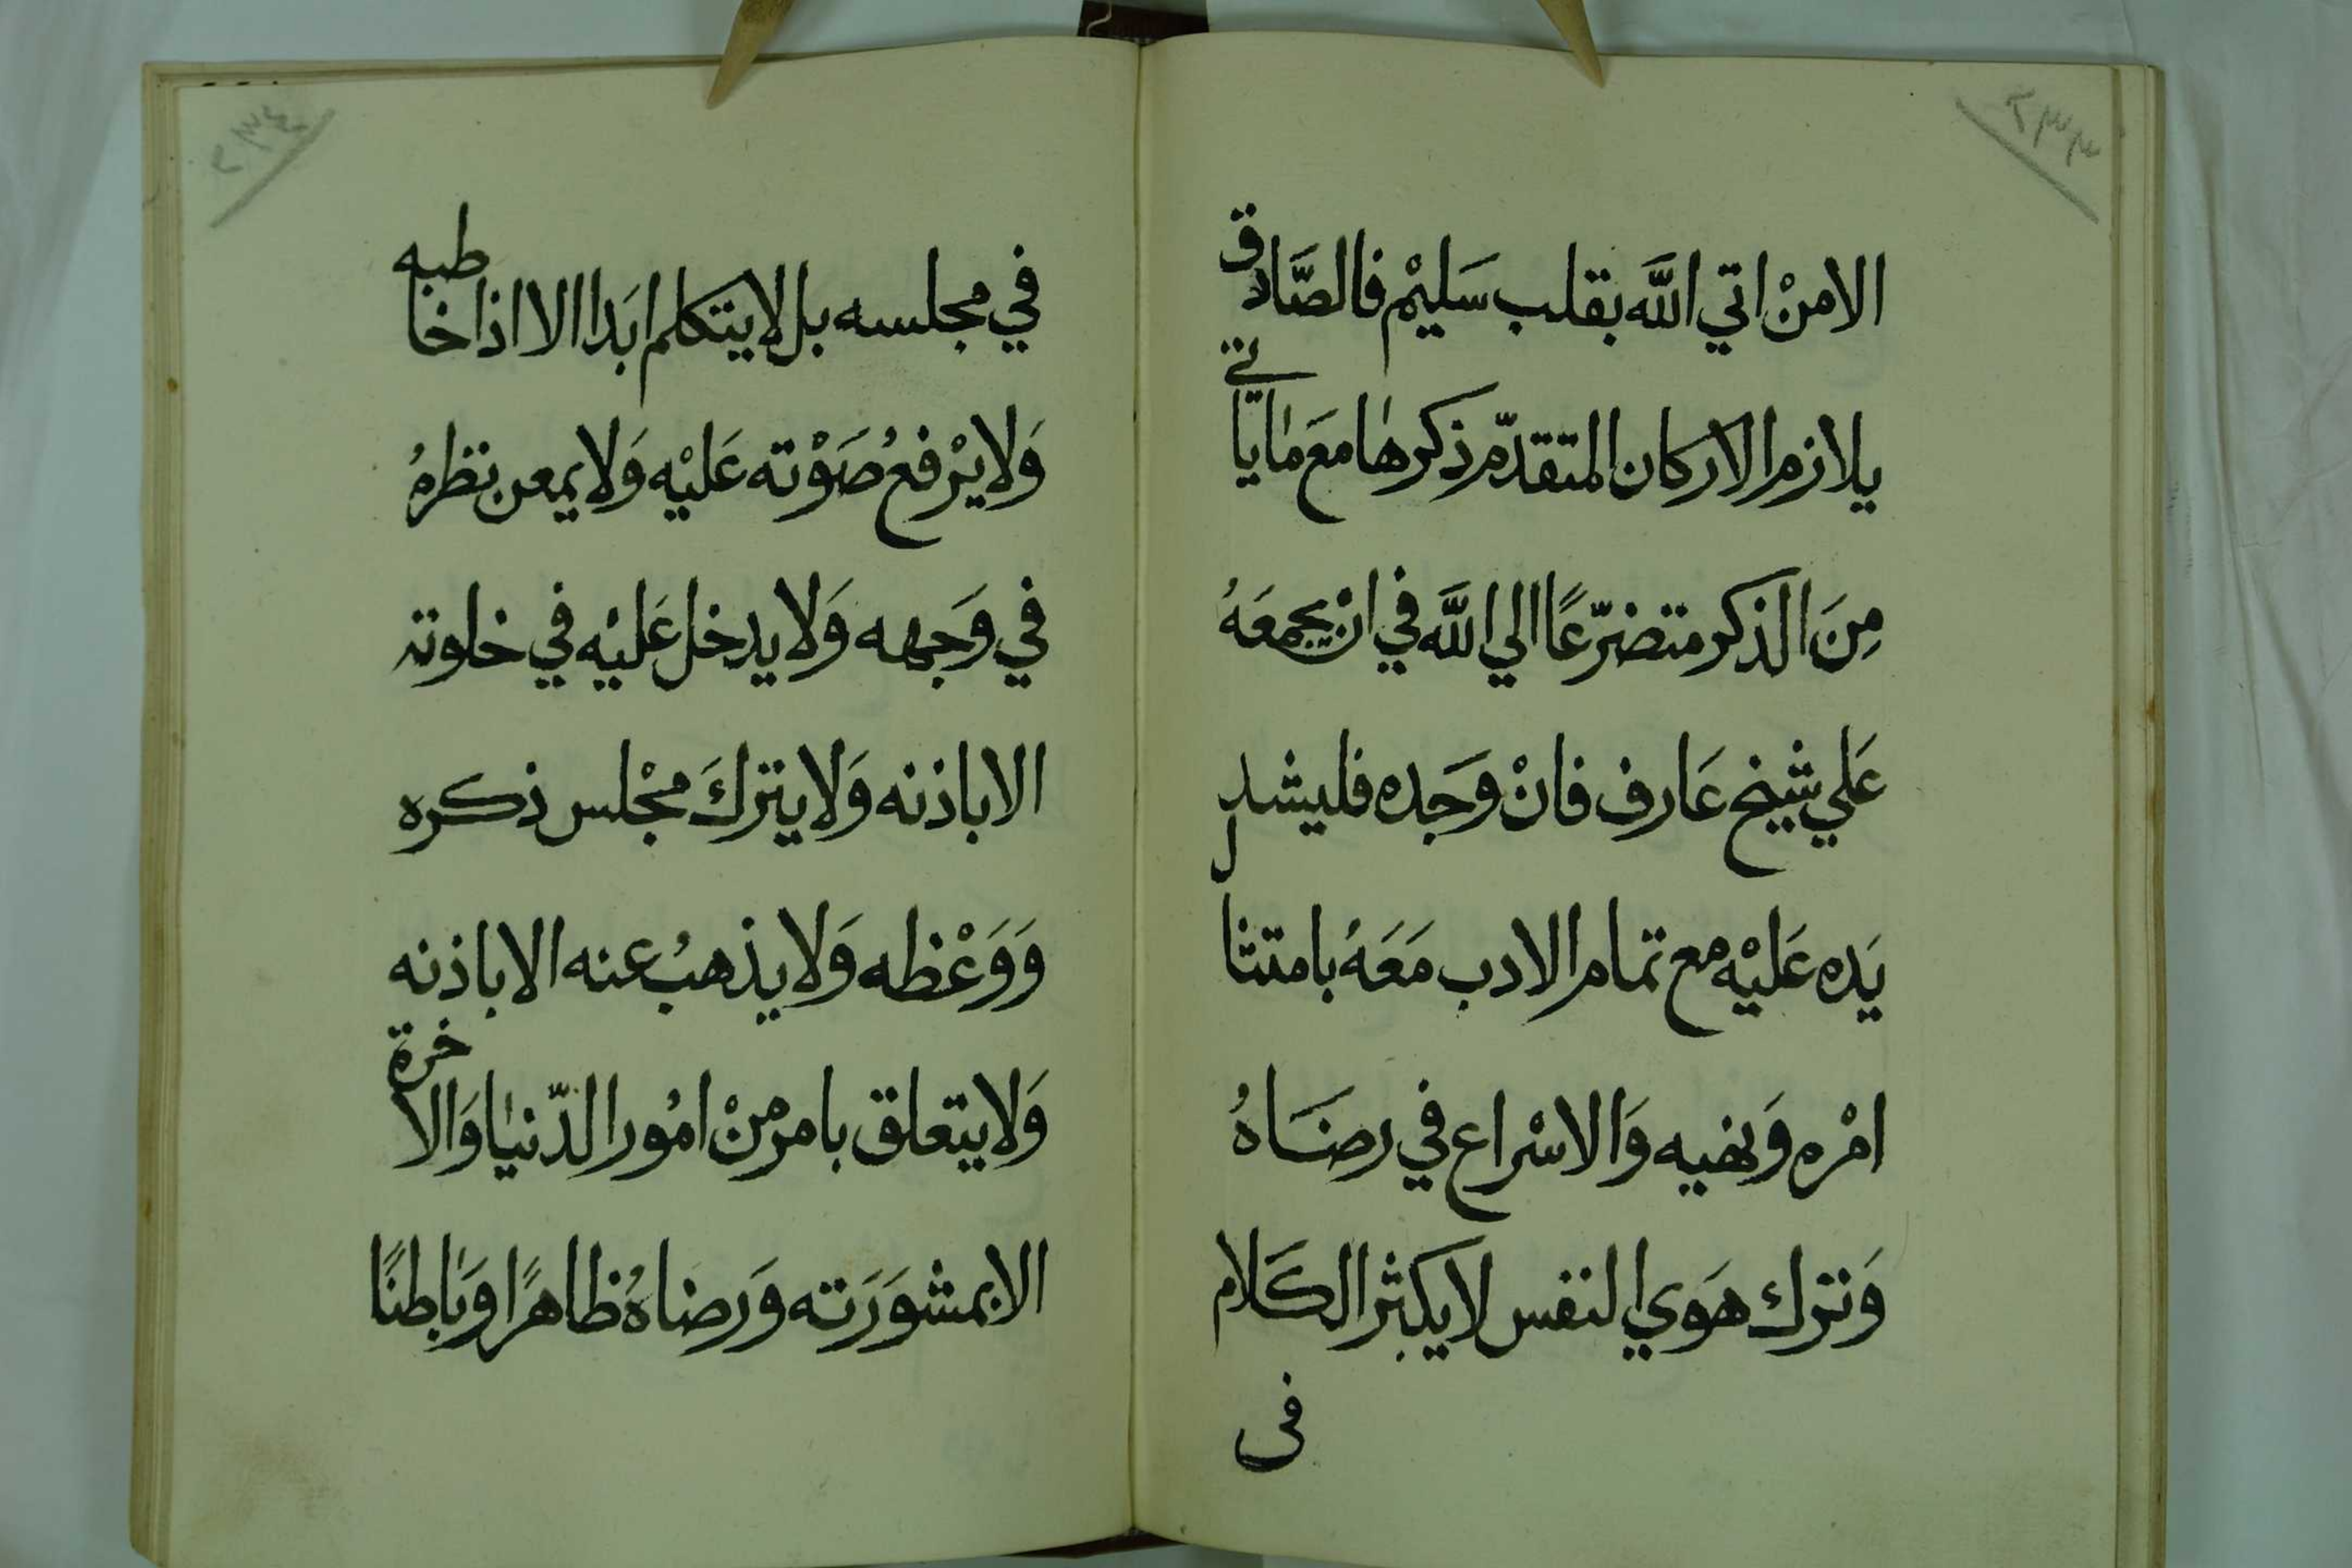 ٢٣٣
الا منْ اتي اللَّه بقلب سَليْم فالصَّادق
يلازم الاركان المتقدّم ذكرها مَعَ ما ياتي
مِنَ الذكر متضرّعًا الي اللَّه في انْ يجمعَهُ
عَلي شيخ عَارف فانْ وَجَده فليشد
يَده عَليْه مع تمام الادب مَعَهُ بامتثال
امْره وَنهيه وَالاسْراع في رضَاهُ
وَترك هَوي النفس لا يكثر الكَلام
فى
٢٣٤
في مجلسه بل لا يتكلم ابَدا الا اذا خاطبه
وَلا يرْفعُ صَوْته عَليْه وَلا يمعن نظرهُ
في وَجهه وَلا يدخل عَليْه في خلوته
الا باذنه وَلا يتركَ مجْلس ذكره
وَوَعْظه وَلا يذهبُ عنه الا باذنه
وَلا يتعلق بامر منْ امُور الدّنيا وَالاخرة
الا بمشوَرَته وَرضاهُ ظاهرًا وَباطنًا